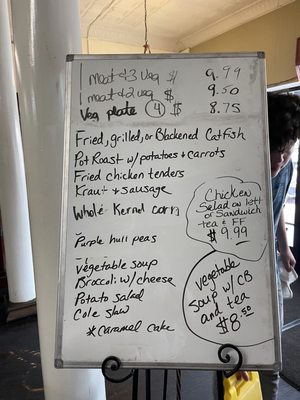 1 meat & 3 veg $ 9.99
1 meat & 2 veg $ 9.50
Veg plate (4) $ 8.75
Fried, grilled, or Blackened Catfish
Pot Roast w/ potatoes + carrots
Fried chicken tenders
Kraut + sausage
Whole Kernel corn
Purple hull peas
Vegetable soup
Broccoli w/ cheese
Potato Salad
Cole slaw
*Caramel Cake
Chicken
Salad on lett
or Sandwich
tea & FF
$9.99
Vegetable
Soup w/ CB
and tea
$8.50